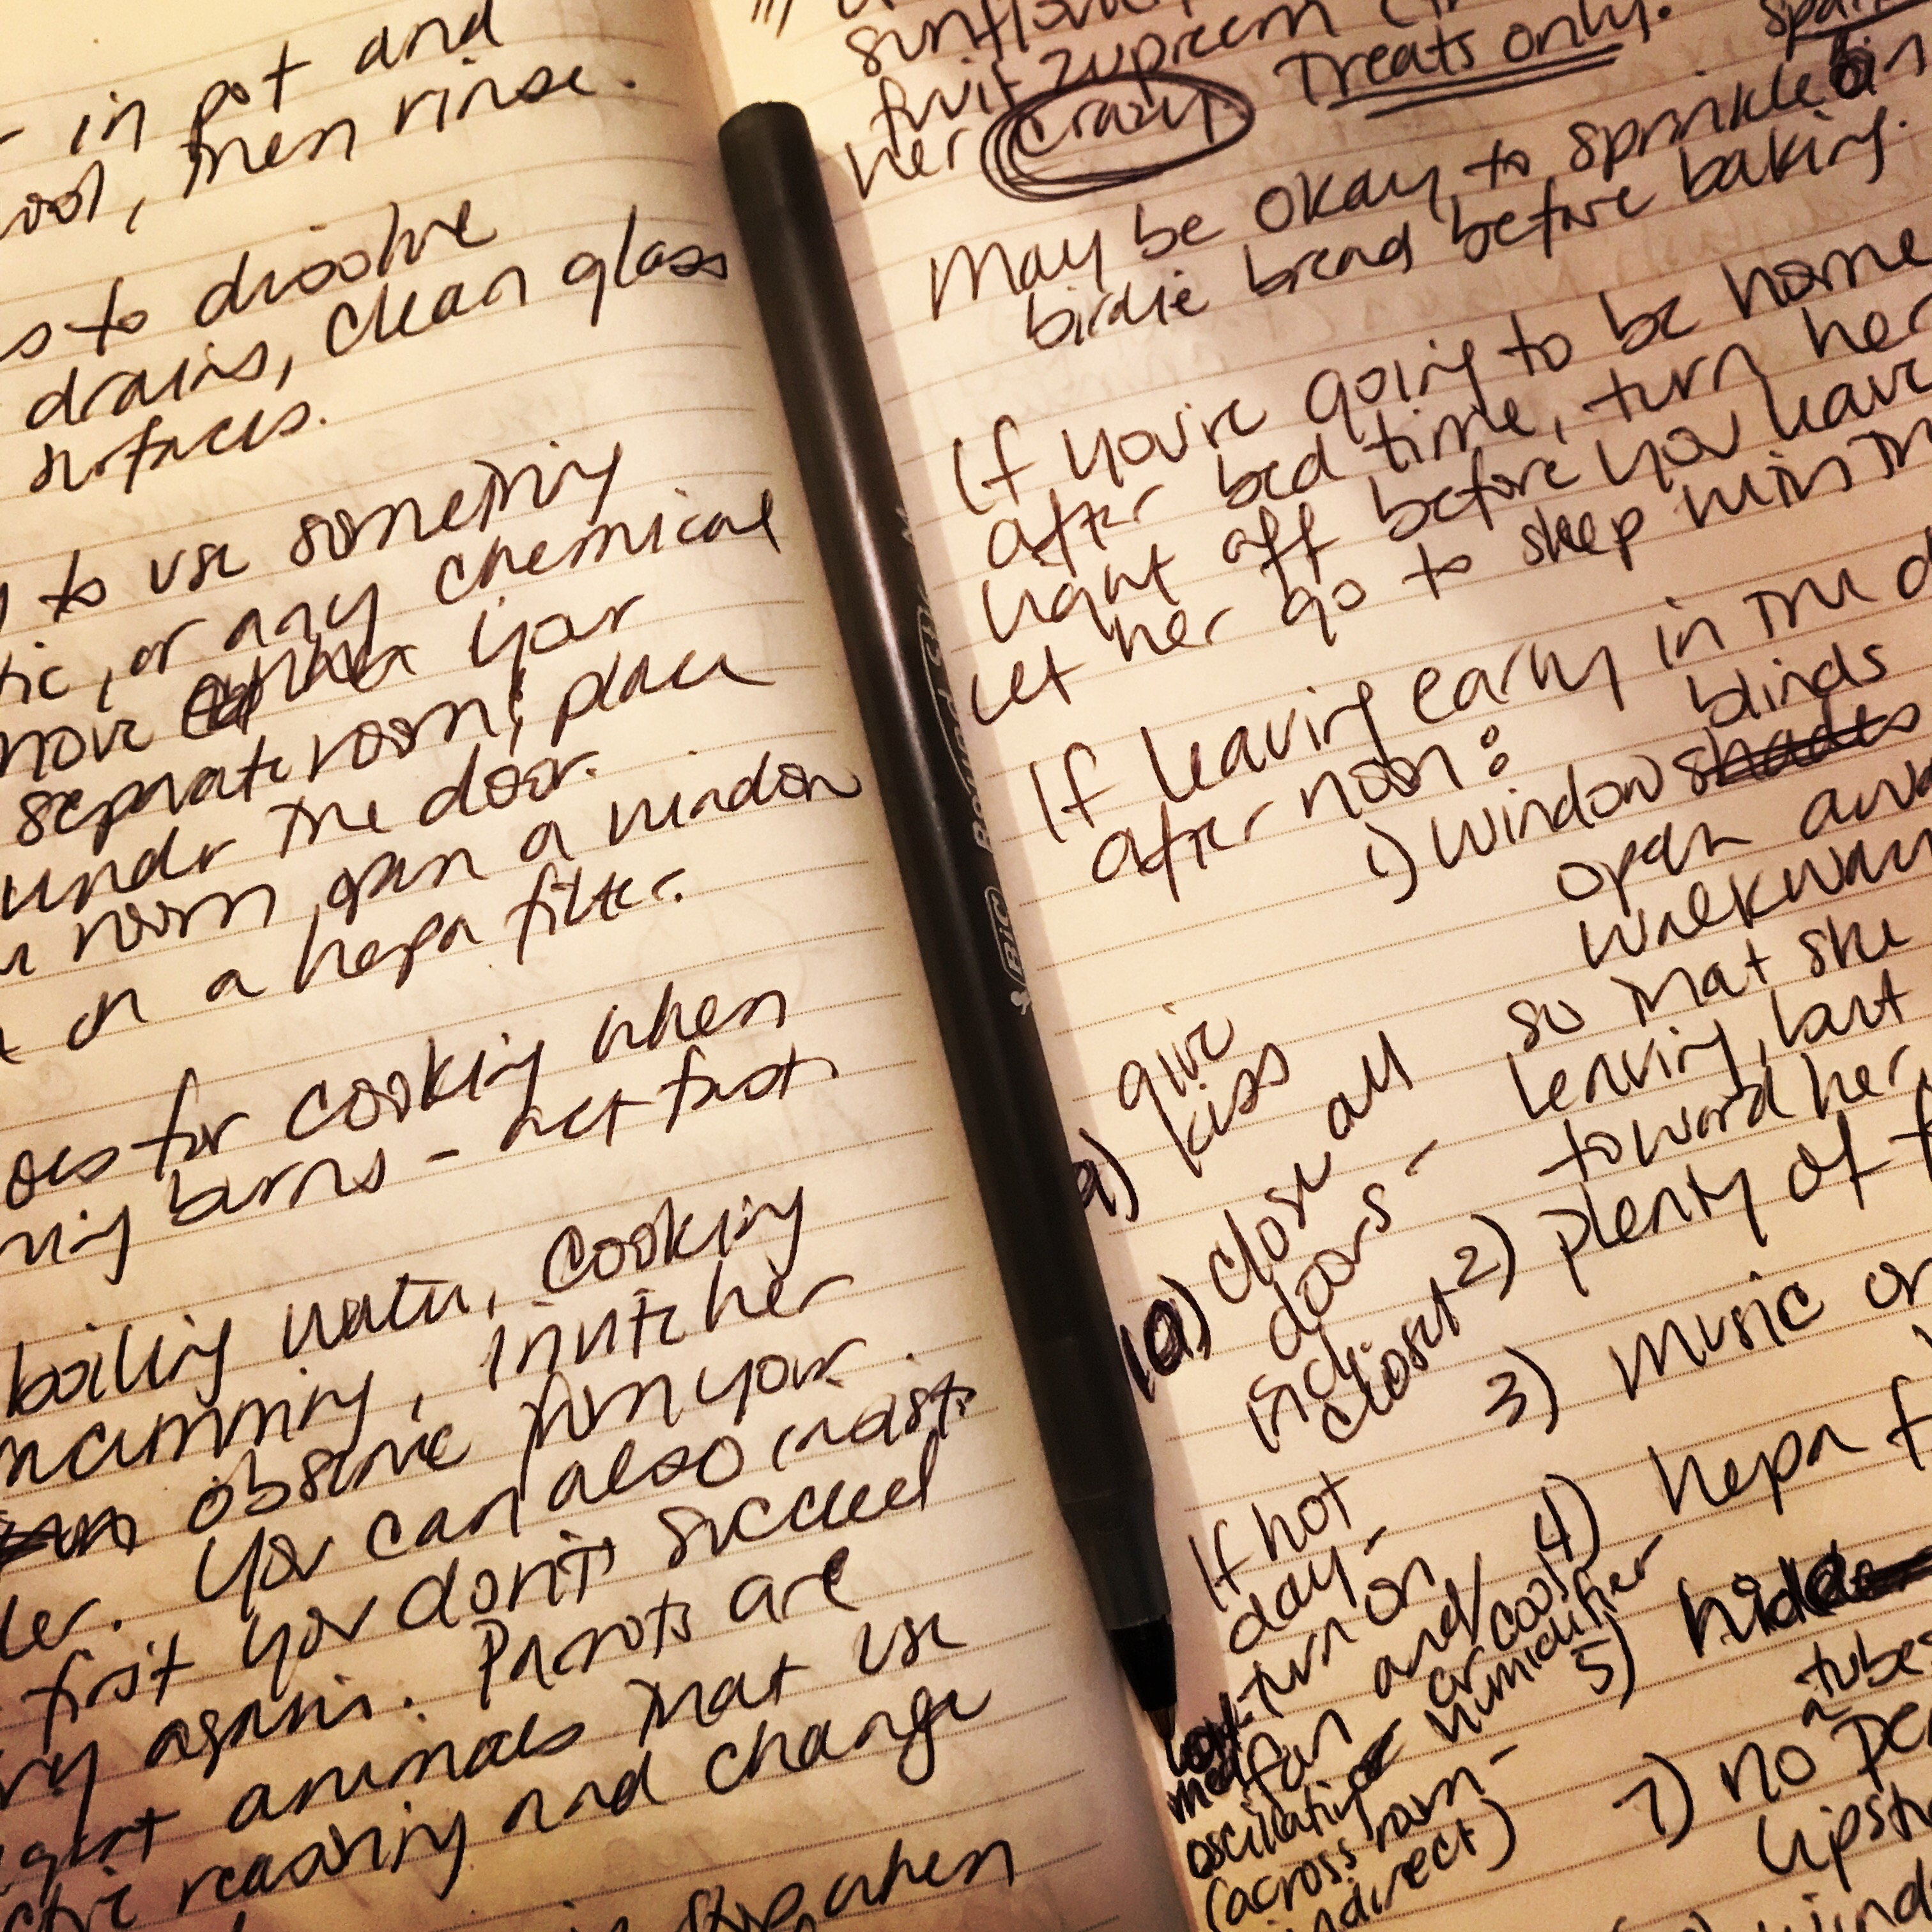 in pot and
, then rinse.
s to dissolve
drains, clean glass
surfaces.
to use something
tic, or any chemical
move your
separate room, place
under the door.
room, open a window
on a hepa filter.
for cooking when
burns - act fast.
boiling water, cooking
, invite her
observe from your
ler. You can also insist.
first you don't succeed
try again. Parrots are
animals that use
reasoning and change
when
BIC
fruit zupreem
her crazy. Treats only.
May be okay to sprinkle in
birdie bread before baking.
If you're going to be home
after bed time, turn her
light off before you leave
Let her go to sleep
If leaving early in the
after noon:
blinds
1) window shades
open
walkway
so that she
leaving, last
toward her
2) plenty of
3) music on
4) hepa f
5) hide
tubes
7) no
lipst
9) give
kiss
10) close all
doors -
closet
If hot
day -
turn on
med fan and/
or cool
humidifier
oscillating
(across room -
indirect)